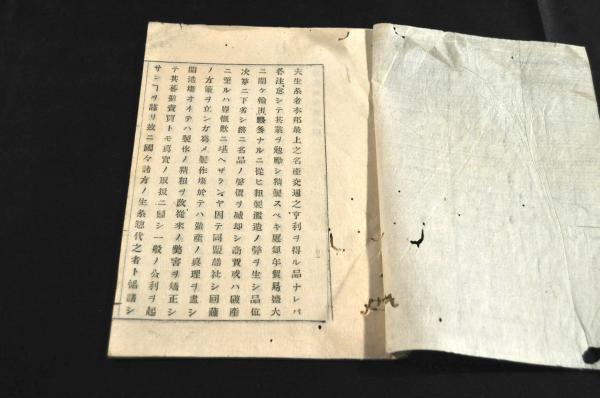 夫生糸者本邦最上之名産交通之亨利ヲ得ル品ナレバ
各注意シテ其業ヲ勉励シ精製スベキ処却年貿易盛大
ニ開ケ輸出夥多ナルニ従ヒ粗製濫造ノ弊ヲ生シ品位
次第ニ下劣シ終ニ名品ノ声価ヲ減却シ商買或ハ破産
ニ至ルハ慨歎ニ堪ヘザランヤ因テ同盟結社シ回復
ノ方策ヲ立ンガ為メ製作場於テハ蚕産ノ真理ヲ尽シ
開港場オイテハ製作ノ精粗ヲ改従来ノ弊害ヲ矯正シ
テ其善悪売買トモ真実ノ取扱ニ帰シ一般ノ公利ヲ起
サンコヲ謀リ玆ニ国々諸方ノ生糸惣代之者ト協議シ